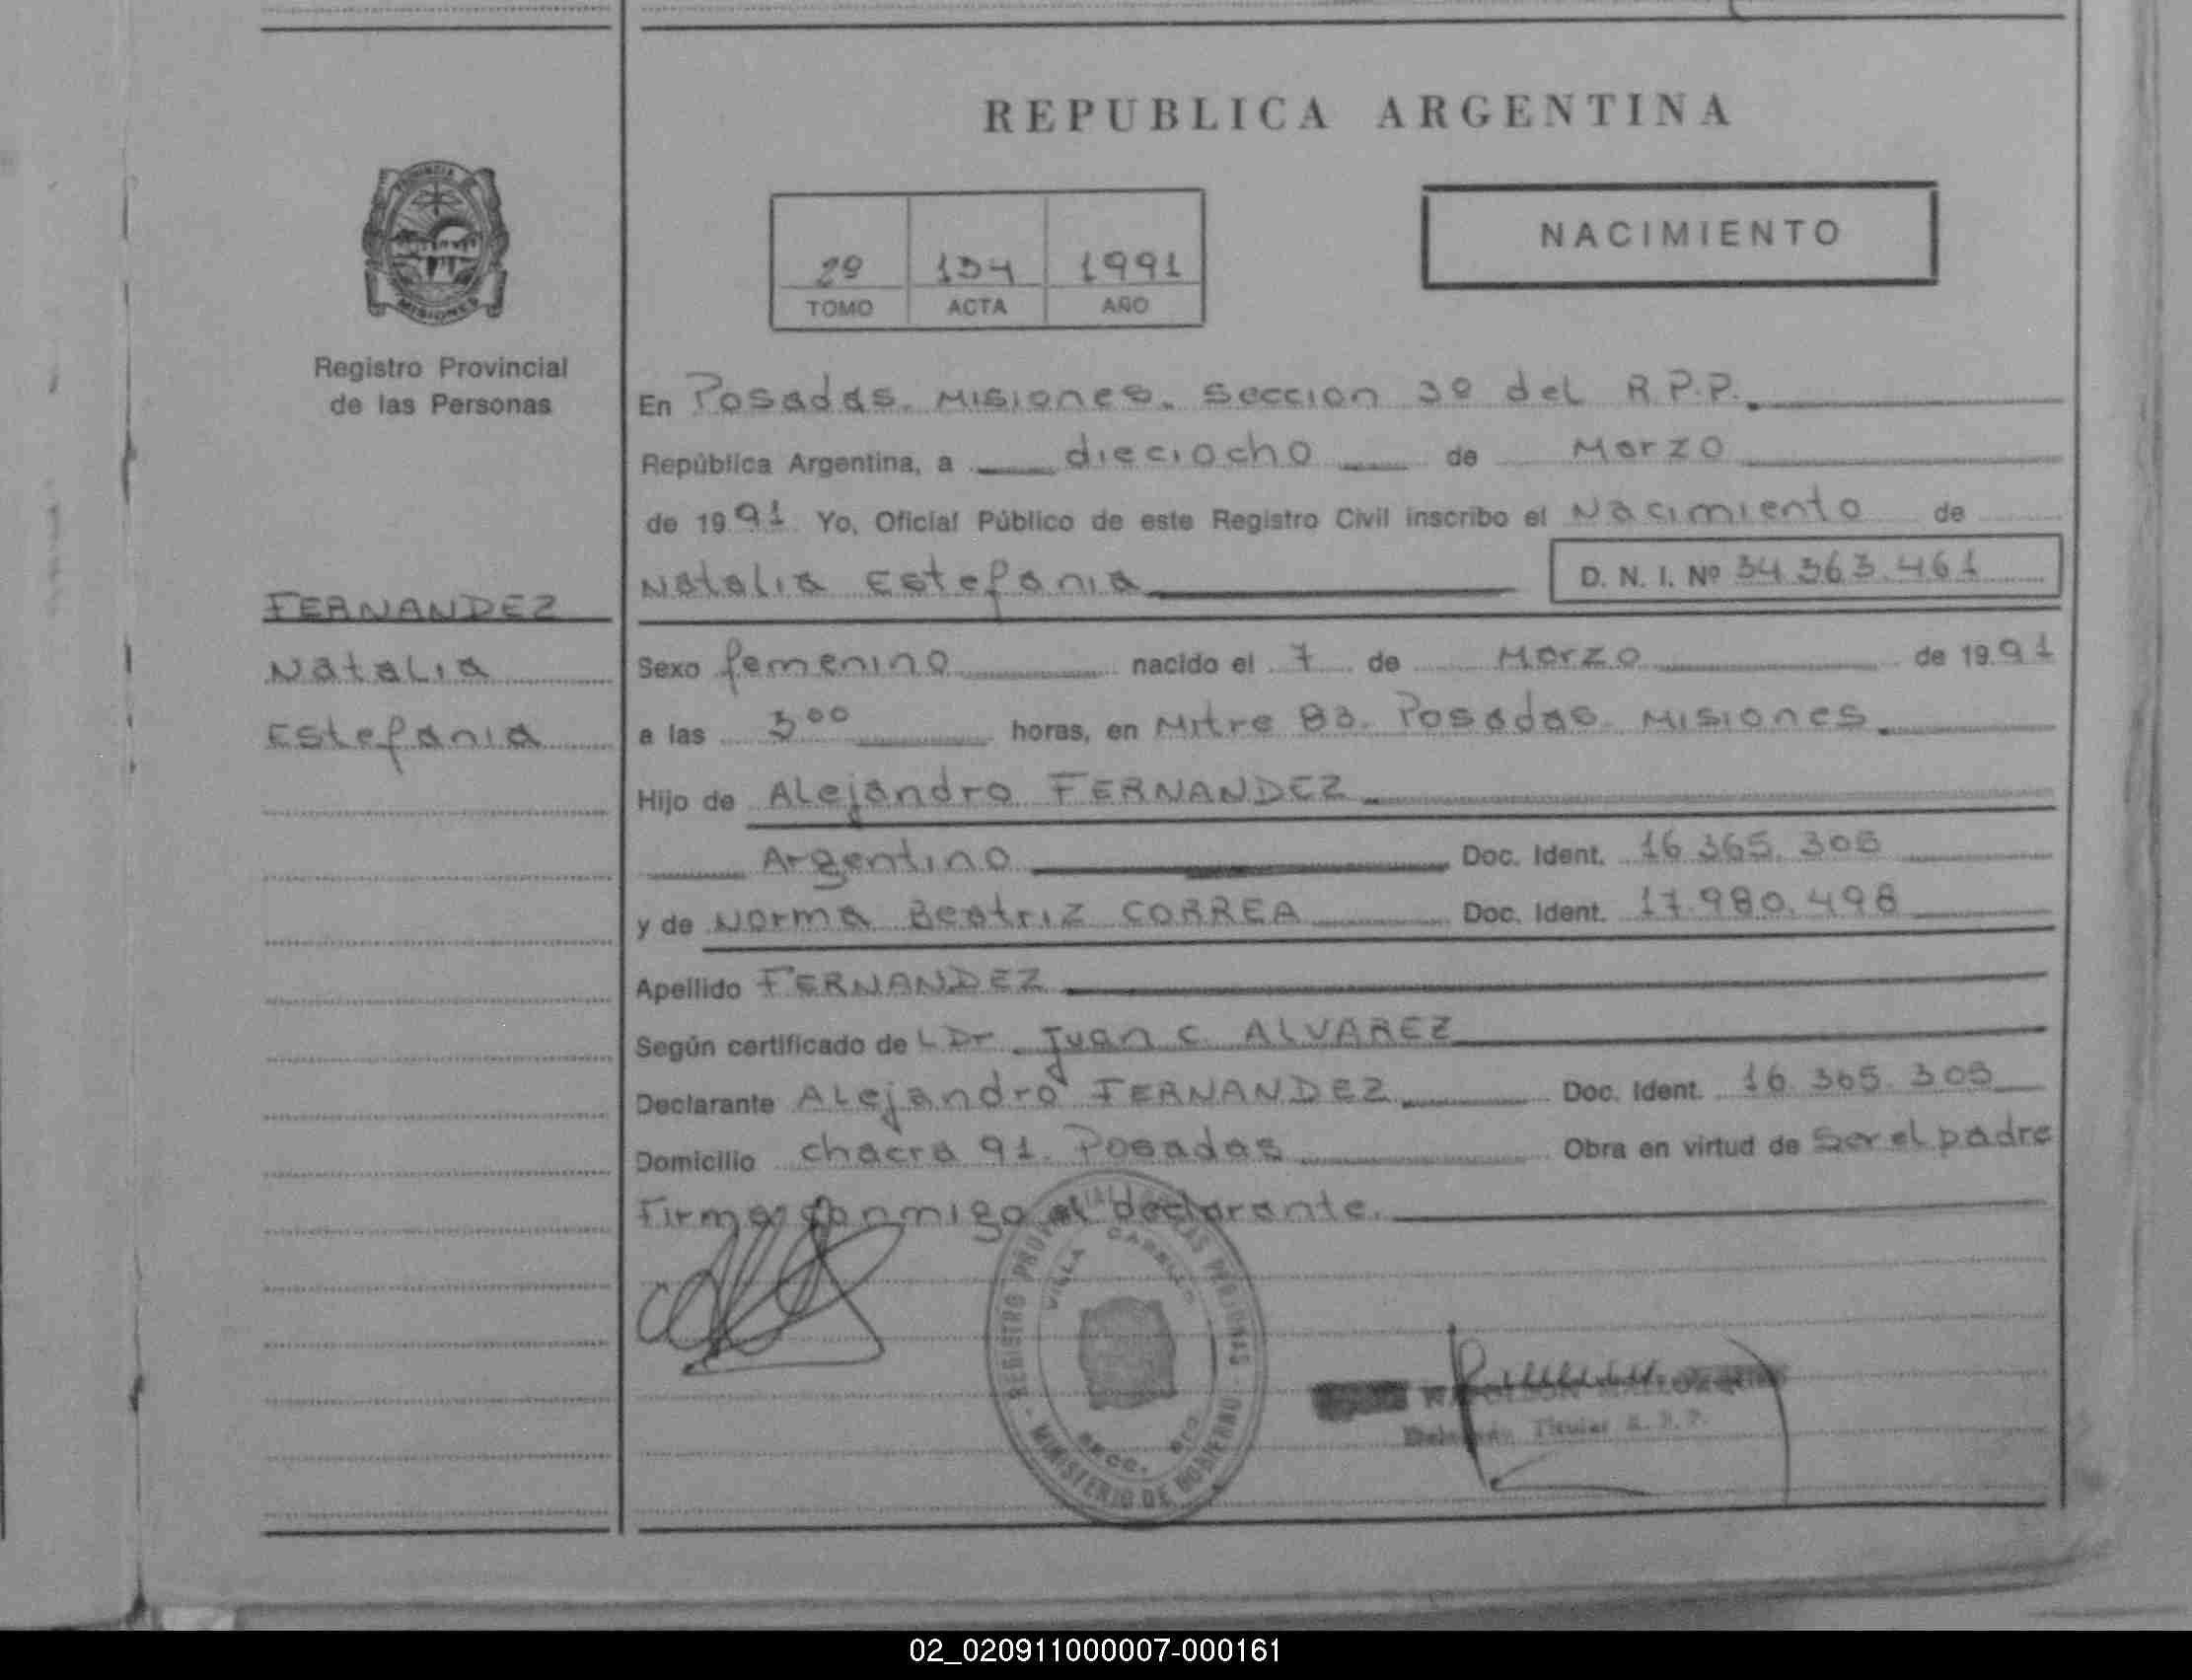 REPUBLICA ARGENTINA
NACIMIENTO
2º 134 1991
TOMO ACTA AÑO
MISIONES
Registro Provincial
de las Personas
FERNANDEZ
Natalia
Estefania
En Posadas. Misiones. Seccion 3º del R.P.P.
República Argentina, a dieciocho de Marzo
de 1991 Yo, Oficial Público de este Registro Civil inscribo el Nacimiento de
Natalia Estefania D. N. I. Nº 34.363.461
Sexo femenino nacido el 7 de Marzo de 1991
a las 3⁰⁰ horas, en Mitre 83. Posadas. Misiones.
Hijo de Alejandro FERNANDEZ
Argentino Doc. Ident. 16.365.305
y de Norma Beatriz CORREA Doc. Ident. 17.980.498
Apellido FERNANDEZ
Según certificado de L Dr. Juan C. ALVAREZ
Declarante Alejandro FERNANDEZ Doc. Ident. 16.365.305
Domicilio chacra 91. Posadas Obra en virtud de Ser el padre
Firma conmigo el declarante.
REGISTRO PROVINCIAL DE LAS PERSONAS
VILLA CABELLO
SECC. 3ra
MINISTERIO DE GOBIERNO
Titular R. P. P.
02_020911000007-000161